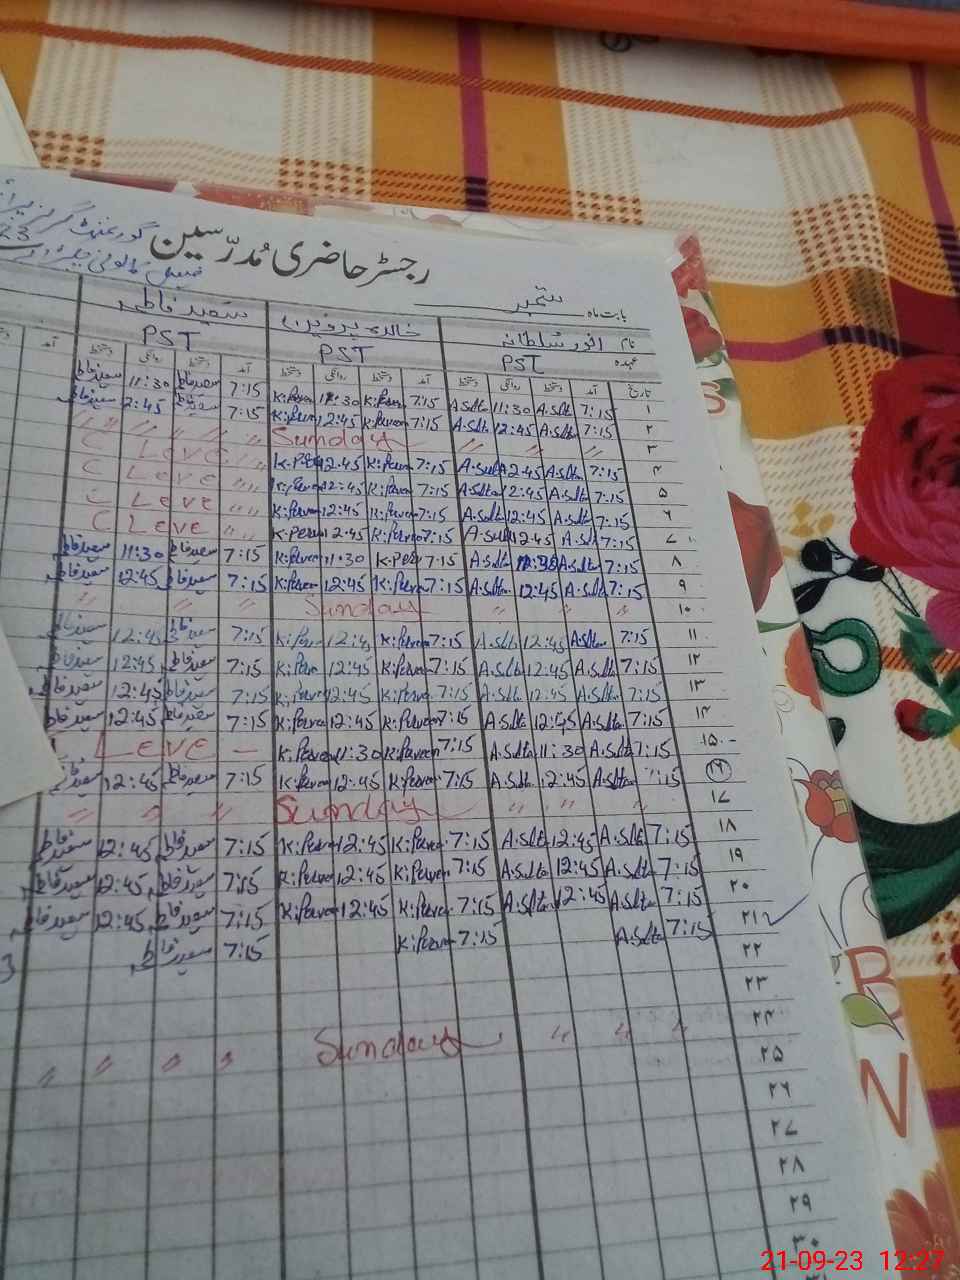 گورنمنٹ گرلز
رجسٹر حاضری مُدرّسین
23
بابت ماہ ستمبر
نام انور سُلطانہ خالدہ پروین سعید فاطمہ
عہدہ PST PST PST
تاریخ آمد دستخط روانگی دستخط آمد دستخط روانگی دستخط آمد دستخط روانگی دستخط آمد
۱ 7:15 A.Slta 11:30 A.Slta 7:15 K:Parven 11:30 K:Parven 7:15 سعید فاطمہ 11:30 سعید فاطمہ
۲ 7:15 A.Slta 12:45 A.Slta 7:15 K:Parven 12:45 K:Parven 7:15 سعید فاطمہ 2:45 سعید فاطمہ
۳ 〃 〃 Sunday 〃 〃 〃 〃
۴ 7:15 A.Slta 12.45 A.Sul 7:15 K:Parven 12.45 K.Per 〃 C Leve
۵ 7:15 A.Slta 12:45 A.Slta 7:15 K:Parven 12:45 K:Parven 〃 C Leve
۶ 7:15 A.Slta 12:45 A.Slta 7:15 K:Parven 12:45 K:Parven 〃 C Leve
۷ 7:15 A.Sl 12:45 A.Sul 7:15 K:Parven 12.45 K:Perven 〃 C Leve
۸ 7:15 A.Slta A.Slta 7:15 K.Per 11:30 K:Parven 7:15 سعید فاطمہ 11:30 سعید فاطمہ
۹ 7:15 A.Slta 12:45 A.Slta 7:15 K:Parven 12:45 K:Parven 7:15 سعید فاطمہ 12:45 سعید فاطمہ
۱۰ 〃 〃 〃 Sunday 〃 〃 〃
۱۱ 7:15 A.Slta 12:45 A.Slta 7:15 K:Parven 12:4 K:Parven 7:15 سعید فاطمہ 12:45 سعید فاطمہ
۱۲ 7:15 A.Slta 12:45 A.Slta 7:15 K:Parven 12:45 K:Parven 7:15 سعید فاطمہ 12:45 سعید فاطمہ
۱۳ 7:15 A.Slta 12:45 A.Slta 7:15 K:Parven 12:45 K:Parven 7:15 سعید فاطمہ 12:45 سعید فاطمہ
۱۴ 7:15 A.Slta 12:45 A.Slta 7:15 K:Parven 12:45 K:Parven 7:15 سعید فاطمہ 12:45 سعید فاطمہ
۱۵ 7:15 A.Slta 11:30 A.Slta 7:15 K:Parveen 11:30 K:Parven – Leve
۱۶ 7:15 A.Slta 12:45 A.Slta 7:15 K:Parven 12:45 K:Parven 7:15 سعید فاطمہ 12:45 سعید فاطمہ
۱۷ 〃 〃 〃 Sunday 〃 〃 〃
۱۸ 7:15 A.Slta 12:45 A.Slta 7:15 K:Parven 12:45 K:Parven 7:15 سعید فاطمہ 12:45 سعید فاطمہ
۱۹ 7:15 A.Slta 12:45 A.Slta 7:15 K:Parven 12:45 K:Parven 7:15 سعید فاطمہ 12:45 سعید فاطمہ
۲۰ 7:15 A.Slta 12:45 A.Slta 7:15 K:Parven 12:45 K:Parven 7:15 سعید فاطمہ 12:45 سعید فاطمہ
۲۱ 7:15 A.Slta 7:15 K:Parven 7:15 سعید فاطمہ
۲۲
۲۳
۲۴ 〃 〃 〃 Sunday 〃 〃 〃 〃
۲۵
۲۶
۲۷
۲۸
۲۹
۳۰
21-09-23 12:27